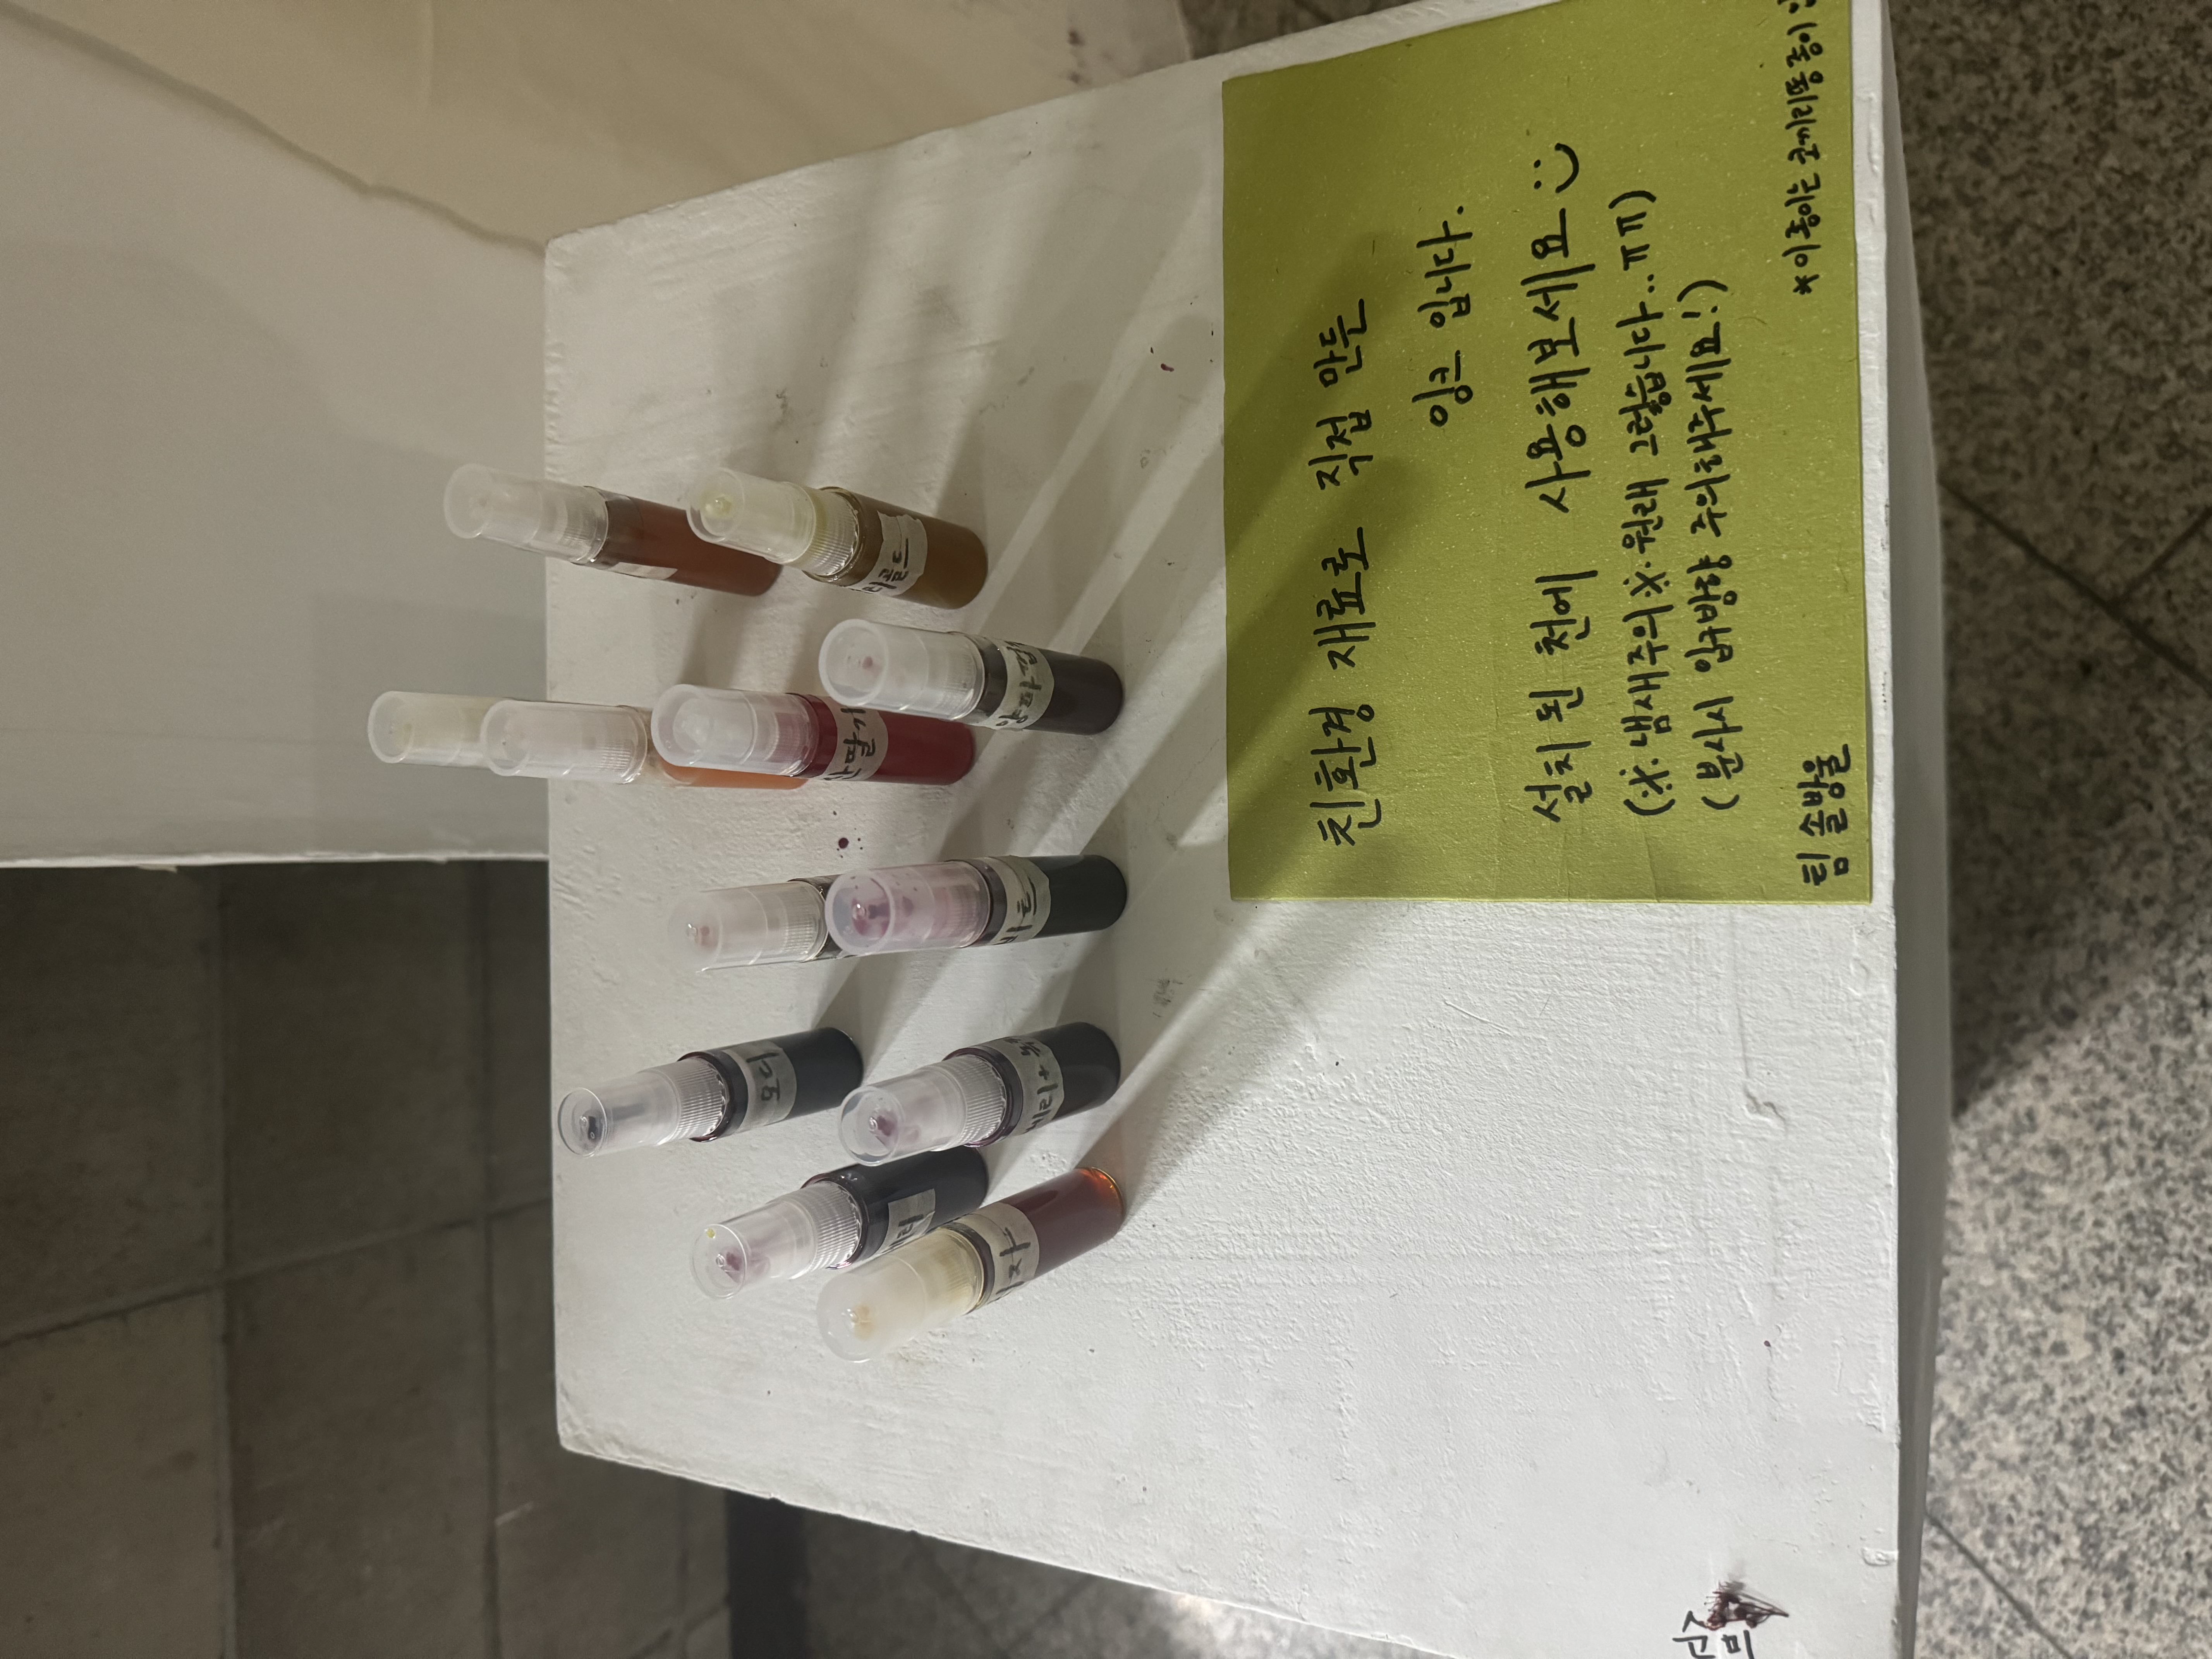 모디
산딸기
리골드
베리
치자
베리+
비트
양파껍
친환경 재료로 직접 만든
잉크 입니다.
설치된 천에 사용해보세요
(※냄새주의※원래 그렇습니다..ㅠㅠ)
(분사시 입구방향 주의해주세요!)
팀 솔방울
*이 종이는 코끼리똥 종이